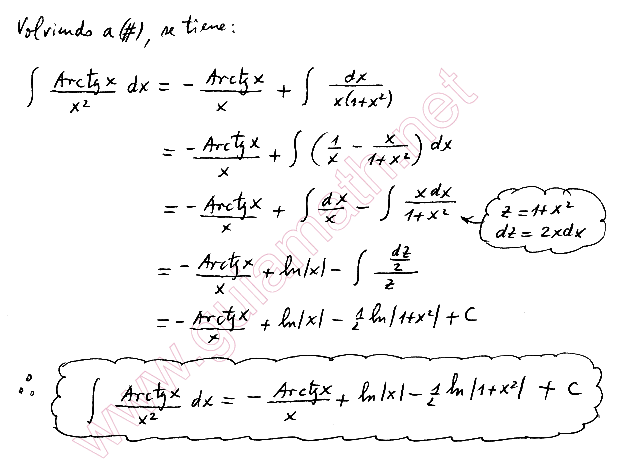 Volviendo a (#), se tiene:
∫ Arctg x / x² dx = - Arctg x / x + ∫ dx / x(1+x²)
= - Arctg x / x + ∫ (1/x - x/(1+x²)) dx
= - Arctg x / x + ∫ dx/x - ∫ x dx / 1+x²
z = 1+x²
dz = 2xdx
= - Arctg x / x + ln|x| - ∫ (dz/2) / z
= - Arctg x / x + ln|x| - 1/2 ln|1+x²| + C
∴ ∫ Arctg x / x² dx = - Arctg x / x + ln|x| - 1/2 ln|1+x²| + C
www.guiamath.net